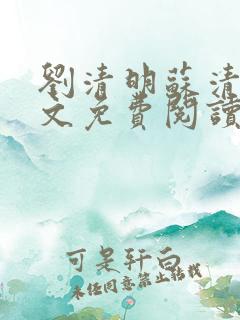 劉清明蘇清
文免費閱讀
可是轩向
未经同意禁止转载